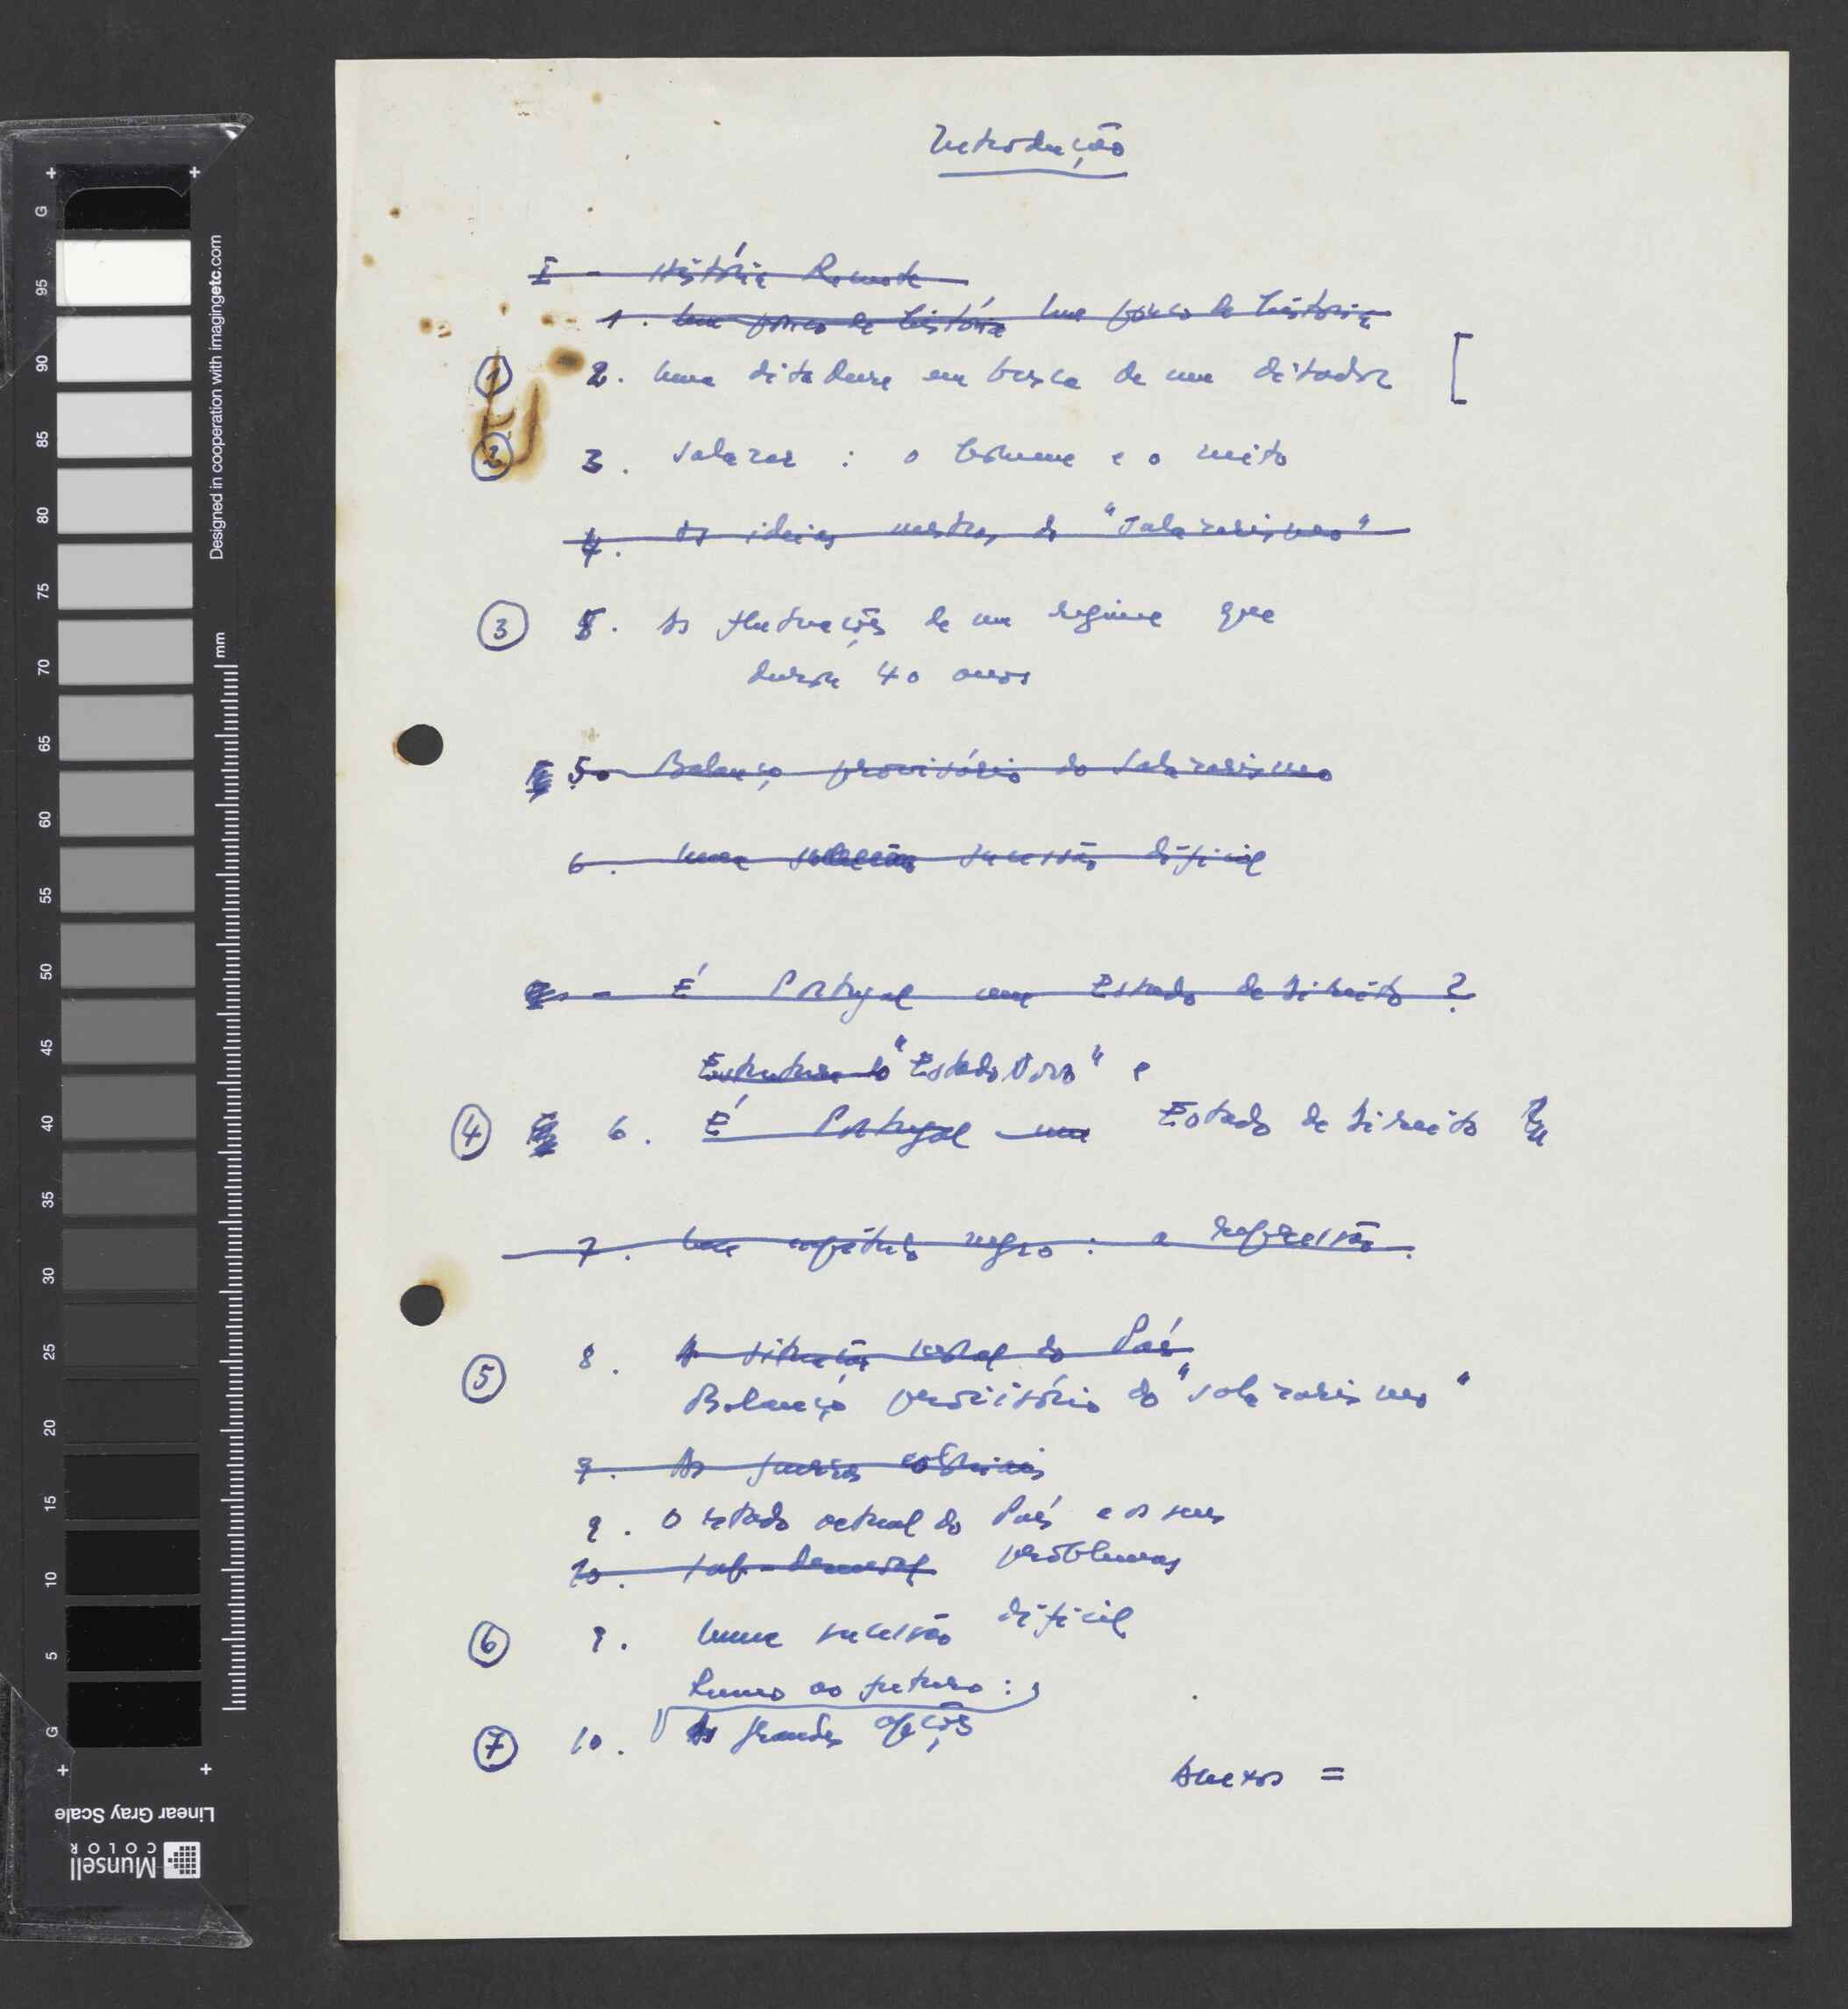 Introdução
I - História Remota
1. Um pouco de história Um pouco de história
① 2. Uma ditadura em busca de um ditador [
② 3. Salazar : o homem e o mito
4. As ideias mestras do "Salazarismo"
③ 5. As flutuações de um regime que
dura 40 anos
5. Balanço provisório do Salazarismo
6. Uma sucessão difícil
- É Portugal um Estado de Direito ?
Estrutura do "Estado Novo" e
④ 6. É Portugal um Estado de Direito
7. Um capítulo negro : a repressão.
8. A situação actual do País
⑤ Balanço provisório do "salazarismo"
9. As guerras coloniais
9. O estado actual do País e os seus
10. problemas
⑥ 9. Uma sucessão difícil
Rumo ao futuro :
⑦ 10. As grandes opções
Anexos =
Designed in cooperation with imagingetc.com
mm
G 95 90 85 80 75 70 65 60 55 50 45 40 35 30 25 20 15 10 5 G
Linear Gray Scale
Munsell
COLOR